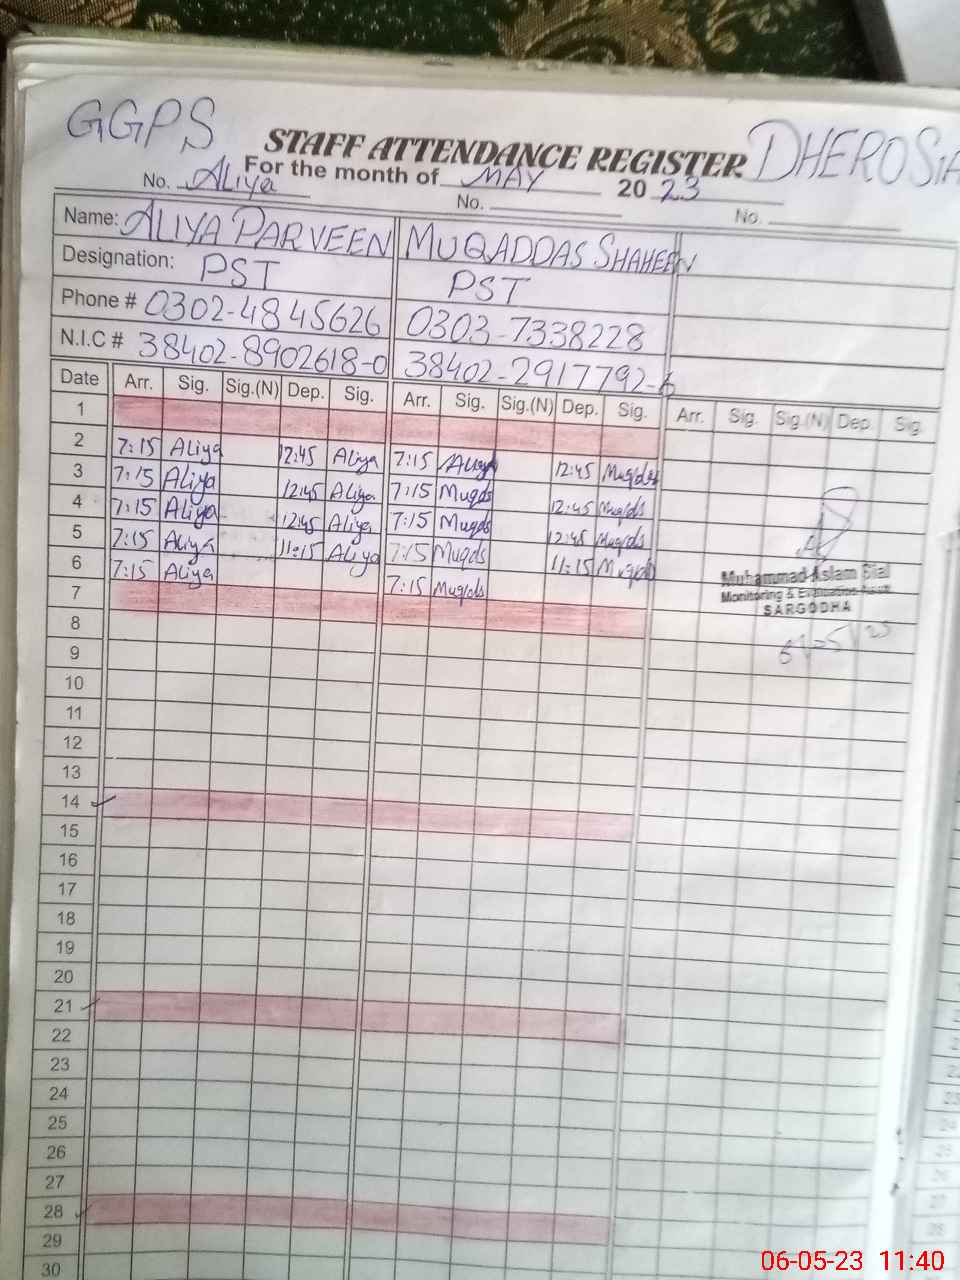 GGPS
STAFF ATTENDANCE REGISTER DHEROSIA
For the month of MAY 2023
No. Aliya No. No.
Name: ALIYA PARVEEN MUQADDAS SHAHEEN
Designation: PST PST
Phone # 0302-4845626 0303-7338228
N.I.C # 38402-8902618-0 38402-2917792-6
Date Arr. Sig. Sig.(N) Dep. Sig. Arr. Sig. Sig.(N) Dep. Sig. Arr. Sig. Sig.(N) Dep. Sig.
1
2 7:15 Aliya 12:45 Aliya 7:15 12:45 Muqds
3 7:15 Aliya 12:45 Aliya 7:15 Muqds 12:45 Muqds
4 7:15 Aliya 12:45 Aliya 7:15 Muqds 12:45 Muqds
5 7:15 Aliya 11:15 Aliya 7:15 Muqds 11:15 Muqds
6 7:15 Aliya 7:15 Muqds
Muhammad Aslam Sial
Monitoring & Evaluation Asstt
SARGODHA
7
8
9
10
11
12
13
14
15
16
17
18
19
20
21
22
23
24
25
26
27
28
29
30
06-05-23 11:40